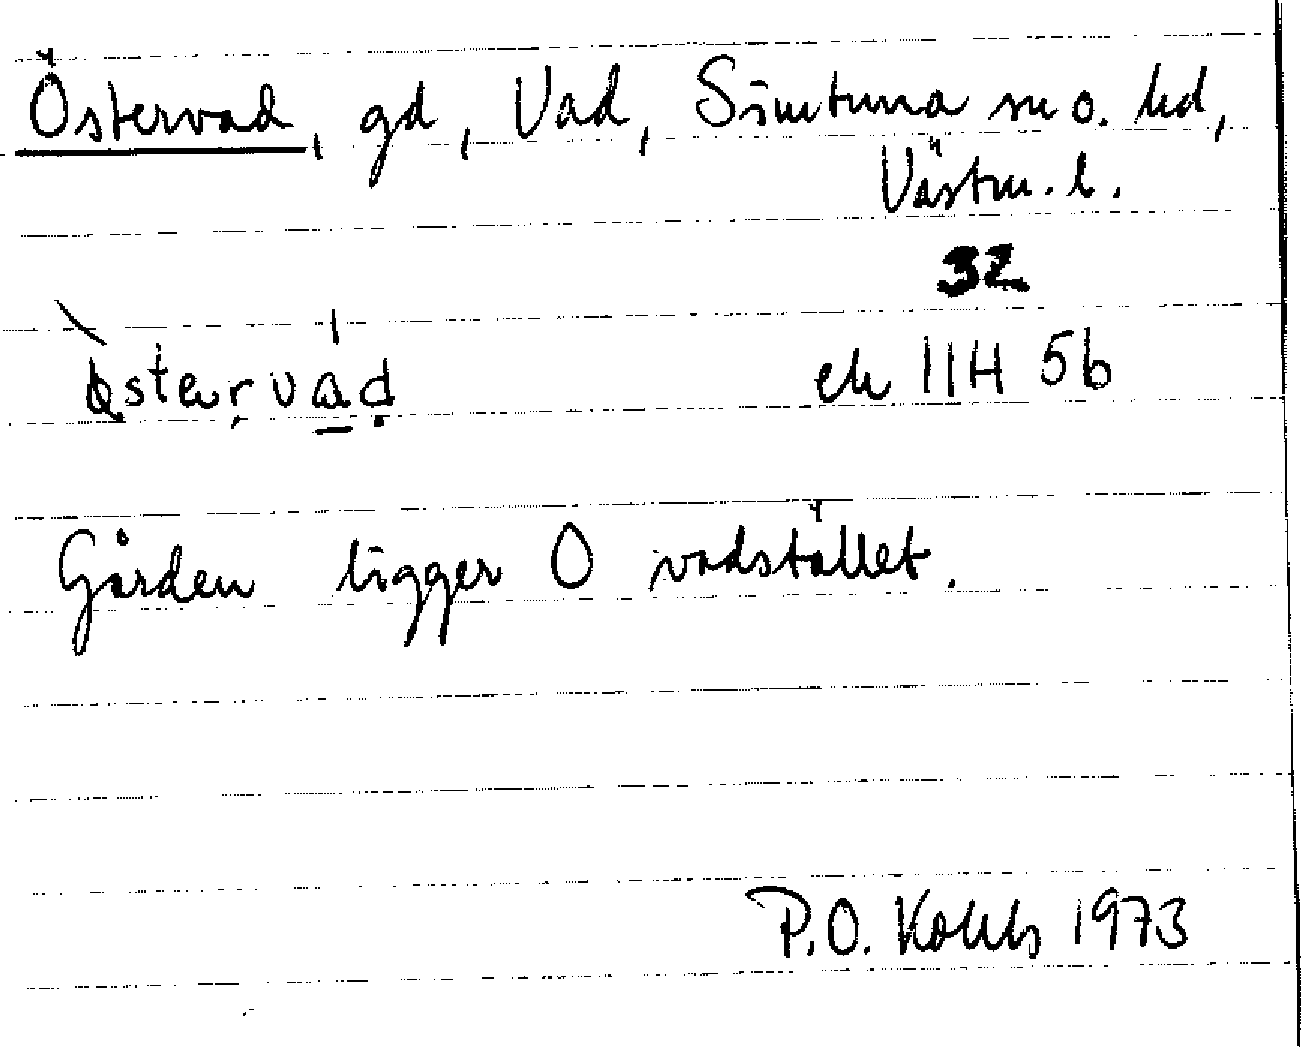 Östervad, gd, Vad, Simtuna sn o. hd,
Västm. l.
32
ek 11H 5b
Gården ligger Ö vadstället.
P.O. 1973